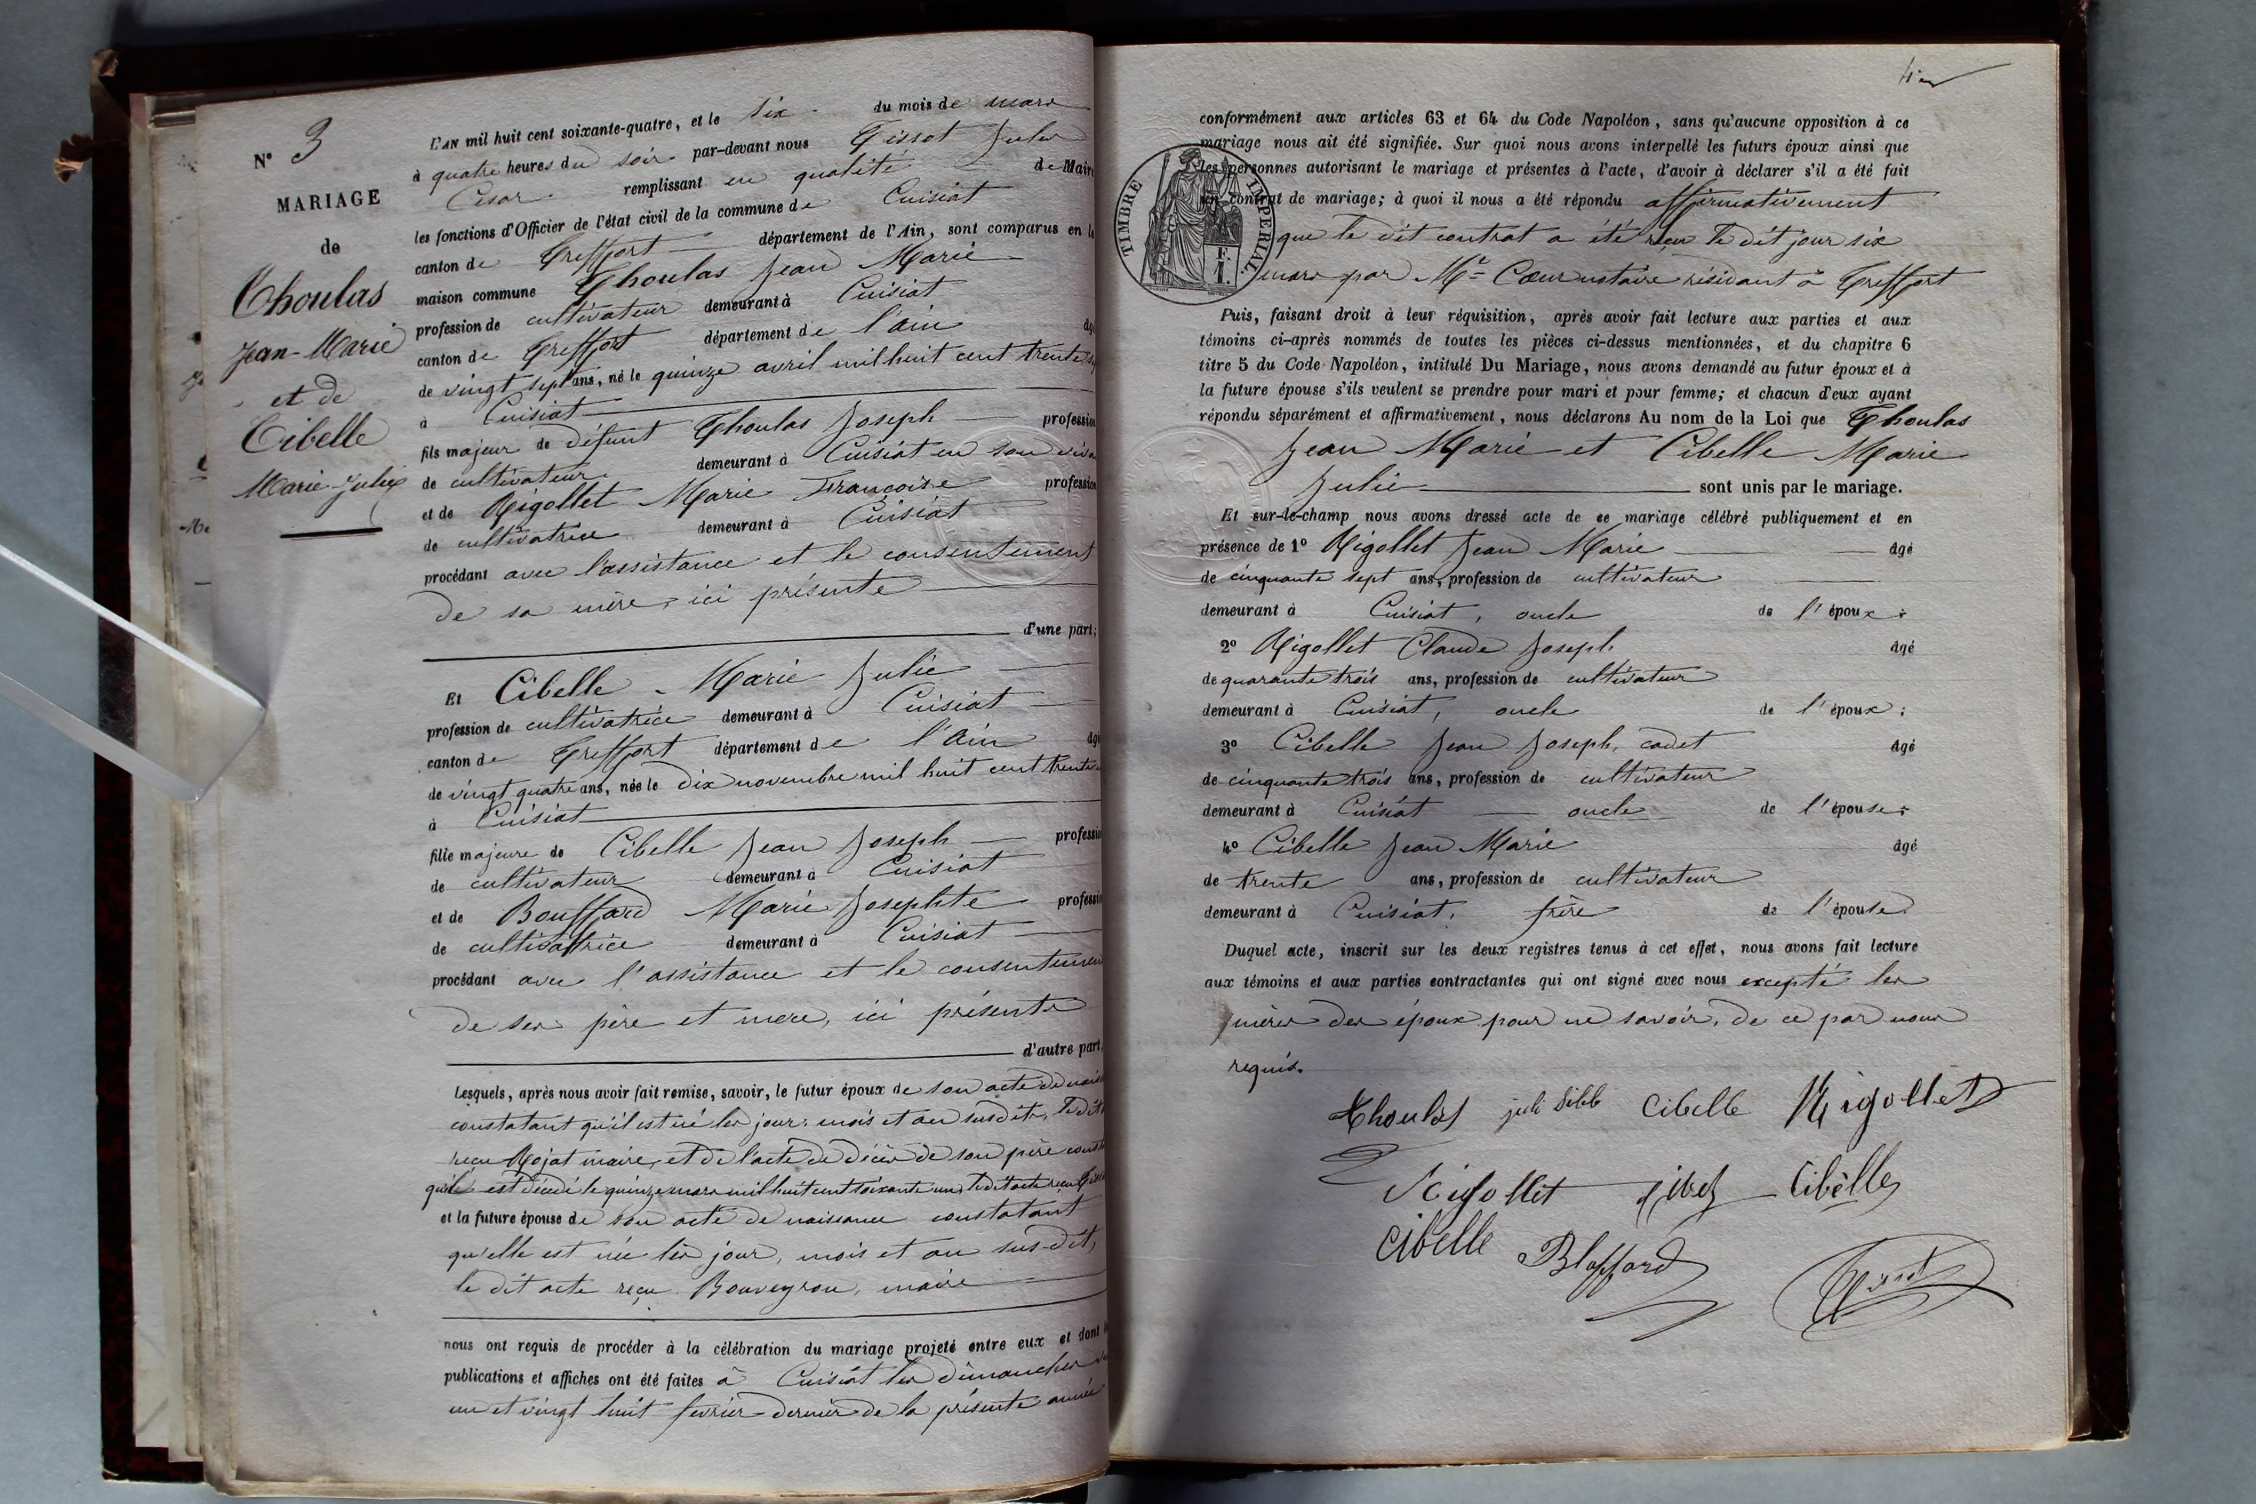 N° 3
MARIAGE
de
Thoulas
Jean-Marie
et de
Cibelle
Marie-Julie
L'AN mil huit cent soixante-quatre, et le six du mois de mars
à quatre heures du soir par-devant nous Tissot Jules
César remplissant en qualité de Maire
les fonctions d'Officier de l'état civil de la commune de Cuisiat
canton de Treffort département de l'Ain, sont comparus en la
maison commune Thoulas Jean Marie
profession de cultivateur demeurant à Cuisiat
canton de Treffort département de l'ain âgé
de vingt sept ans, né le quinze avril mil huit cent trente
à Cuisiat
fils majeur de défunt Thoulas Joseph profession
de cultivateur demeurant à Cuisiat en son
et de Rigollet Marie Françoise profession
de cultivatrice demeurant à Cuisiat
procédant avec l'assistance et le consentement
de sa mère, ici présente
d'une part;
Et Cibelle Marie Julie
profession de cultivatrice demeurant à Cuisiat
canton de Treffort département de l'Ain
de vingt quatre ans, née le dix novembre mil huit cent trente
à Cuisiat
fille majeure de Cibelle Jean Joseph
de cultivateur demeurant à Cuisiat
et de Bouffard Marie Josephte
de cultivatrice demeurant à Cuisiat
procédant avec l'assistance et le
de ses père et mere, ici présents
d'autre part,
Lesquels, après nous avoir fait remise, savoir, le futur époux de son acte de
constatant qu'il est né les jour, mois et an susdits, le dit
reçu Mojat maire, et de l'acte de décès de son père
qu'il est décédé le quinze mars mil huit cent soixante un, le dit acte reçu
et la future épouse de son acte de naissance constatant
qu'elle est née les jour, mois et an sus-dit,
le dit acte reçu Bouveyron, maire
nous ont requis de procéder à la célébration du mariage projeté entre eux et dont
publications et affiches ont été faites à Cuisiat les dimanches
un et vingt huit fevrier dernier de la présente année
conformément aux articles 63 et 64 du Code Napoléon, sans qu'aucune opposition à ce
mariage nous ait été signifiée. Sur quoi nous avons interpellé les futurs époux ainsi que
les personnes autorisant le mariage et présentes à l'acte, d'avoir à déclarer s'il a été fait
un contrat de mariage; à quoi il nous a été répondu affirmativement
que le dit contrat a été reçu le dit jour six
mars par Me Cœur notaire résidant à Treffort
TIMBRE IMPERIAL.
Puis, faisant droit à leur réquisition, après avoir fait lecture aux parties et aux
témoins ci-après nommés de toutes les pièces ci-dessus mentionnées, et du chapitre 6
titre 5 du Code Napoléon, intitulé Du Mariage, nous avons demandé au futur époux et à
la future épouse s'ils veulent se prendre pour mari et pour femme; et chacun d'eux ayant
répondu séparément et affirmativement, nous déclarons Au nom de la Loi que Thoulas
Jean Marie et Cibelle Marie
Julie sont unis par le mariage.
Et sur-le-champ nous avons dressé acte de ce mariage célébré publiquement et en
présence de 1° Rigollet Jean Marie âgé
de cinquante sept ans, profession de cultivateur
demeurant à Cuisiat, oncle de l'époux;
2° Rigollet Claude Joseph âgé
de quarante trois ans, profession de cultivateur
demeurant à Cuisiat, oncle de l'époux;
3° Cibelle Jean Joseph, cadet âgé
de cinquante trois ans, profession de cultivateur
demeurant à Cuisiat oncle de l'épouse;
4° Cibelle Jean Marie âgé
de trente ans, profession de cultivateur
demeurant à Cuisiat, frère de l'épouse.
Duquel acte, inscrit sur les deux registres tenus à cet effet, nous avons fait lecture
aux témoins et aux parties contractantes qui ont signé avec nous excepté les
mères des époux pour ne savoir, de ce par nous
requis.
Thoulas Cibelle Rigollet
Cibelle
Cibelle